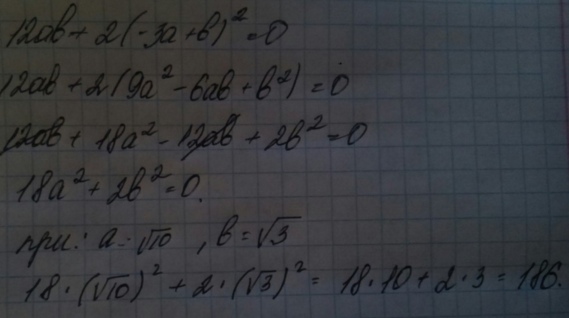 12ab + 2(-3a+b)² = 0
12ab + 2(9a² - 6ab + b²) = 0
12ab + 18a² - 12ab + 2b² = 0
18a² + 2b² = 0.
при: a = √10, b = √3
18·(√10)² + 2·(√3)² = 18·10 + 2·3 = 186.